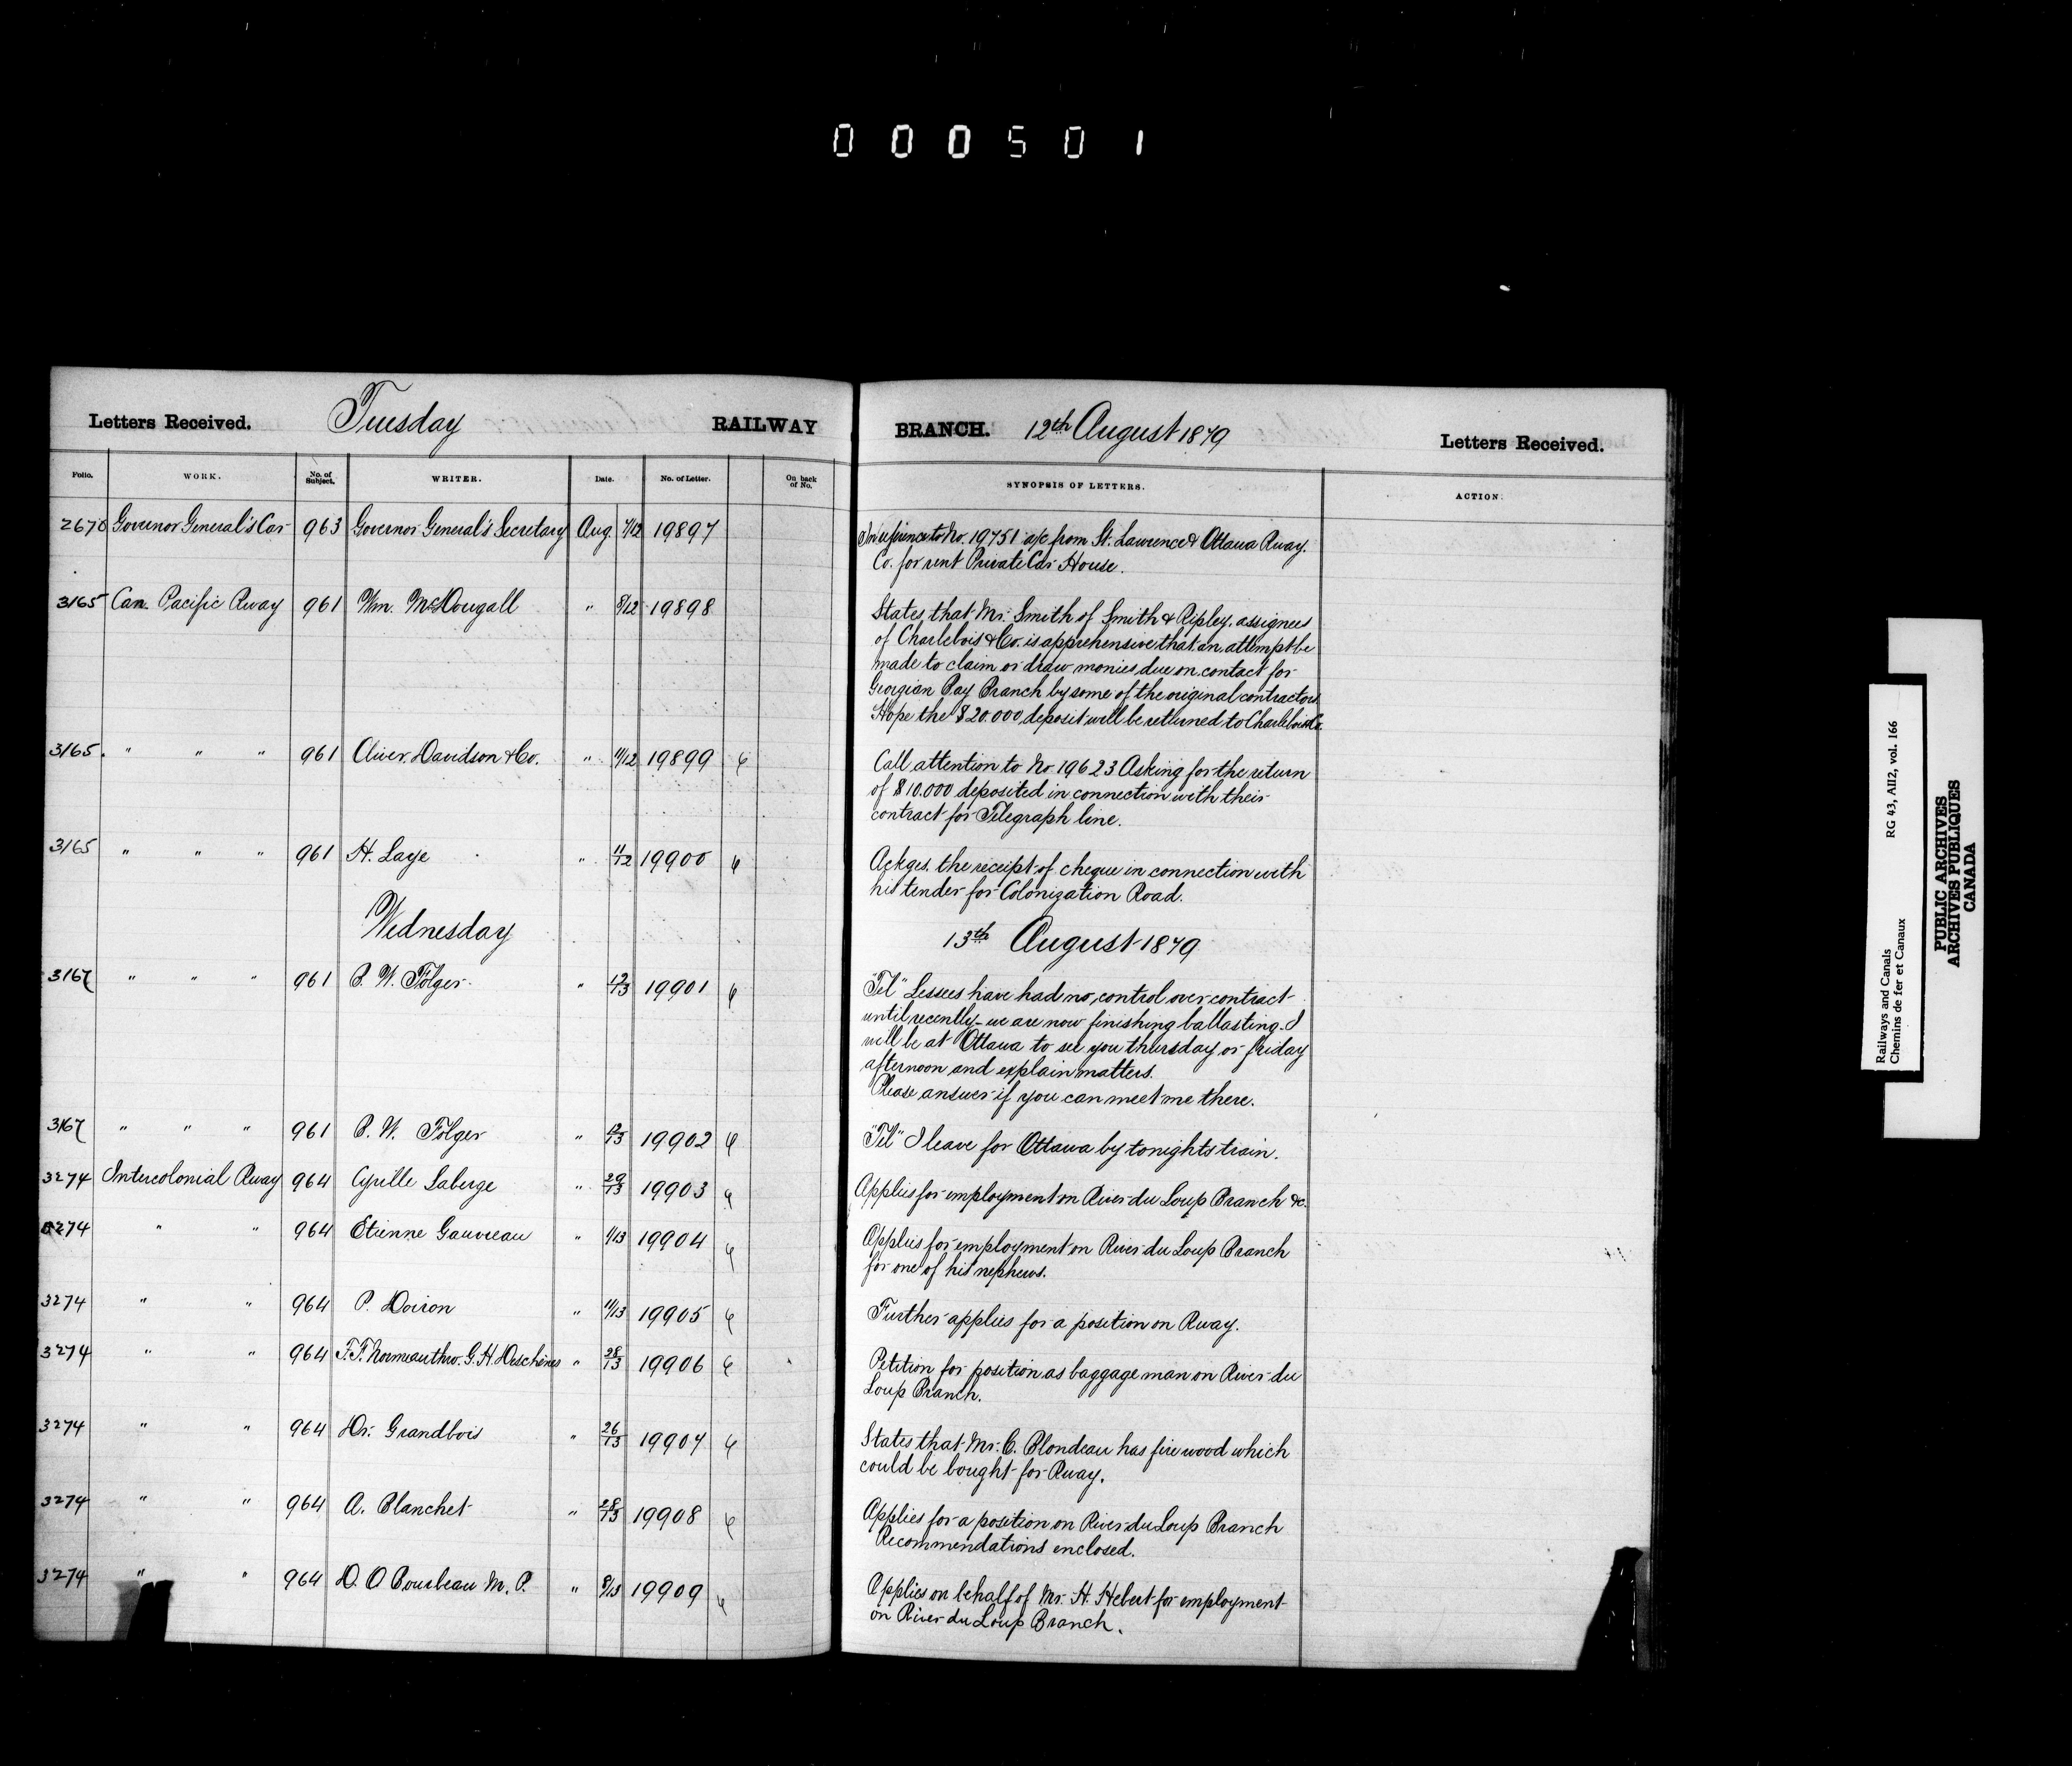 000501
Letters Received. Tuesday RAILWAY BRANCH. 12th August 1879 Letters Received.
Folio. WORK. No. of Subject. WRITER. Date. No. of Letter. On back of No. SYNOPSIS OF LETTERS. ACTION.
2670 Governor General's Car 963 Governor General's Secretary Aug. 7/12 19897 In reference to No. 19751 a/c from St. Lawrence & Ottawa Rway.
Co. for rent Private Car House.
3165 Can. Pacific Rway 961 Wm. McDougall " 8/12 19898 States that Mr. Smith of Smith & Ripley, assignees
of Charlebois & Co. is apprehensive that an attempt be
made to claim or draw monies due on contact for
Georgian Bay Branch by some of the original contractors.
Hope the $20.000 deposit will be returned to Charlebois & Co.
3165. " " " 961 Oliver. Davidson & Co. " 11/12 19899 Call attention to No 19623 Asking for the return
of $10.000 deposited in connection with their
contract for Telegraph line.
3165 " " " 961 H. Laye " 11/12 19900 Ackges. the receipt of cheque in connection with
his tender for Colonization Road.
Wednesday 13th August 1879
3167 " " " 961 B. W. Folger " 12/13 19901 "Tel" Lessees have had no control over contract
until recently - we are now finishing ballasting. I
will be at Ottawa to see you thursday or friday
afternoon and explain matters.
Please answer if you can meet me there.
3167 " " " 961 B. W. Folger " 12/13 19902 "Tel" I leave for Ottawa by tonights train.
3274 Intercolonial Rway 964 Cyrille Laberge " 29/13 19903 Applies for employment on River du Loup Branch &c.
3274 " " 964 Etienne Gauvreau " 1/13 19904 Applies for employment on River du Loup Branch
for one of his nephews.
3274 " " 964 P. Doiron " 11/13 19905 Further applies for a position on Rway.
3274 " " 964 F. F. Normeau thro. G. H. Deschênes " 28/13 19906 Petition for position as baggage man on River du
Loup Branch.
3274 " " 964 Dr. Grandbois " 26/13 19907 States that Mr. C. Blondeau has fire wood which
could be bought for Rway.
3274 " " 964 A. Blanchet " 28/13 19908 Applies for a position on River du Loup Branch
Recommendations enclosed.
3274 " " 964 D. O Bourbeau M. P. " 8/13 19909 Applies on behalf of Mr. H. Hebert for employment
on River du Loup Branch.
Railways and Canals RG 43, AII2, vol. 166
Chemins de fer et Canaux
PUBLIC ARCHIVES
ARCHIVES PUBLIQUES
CANADA